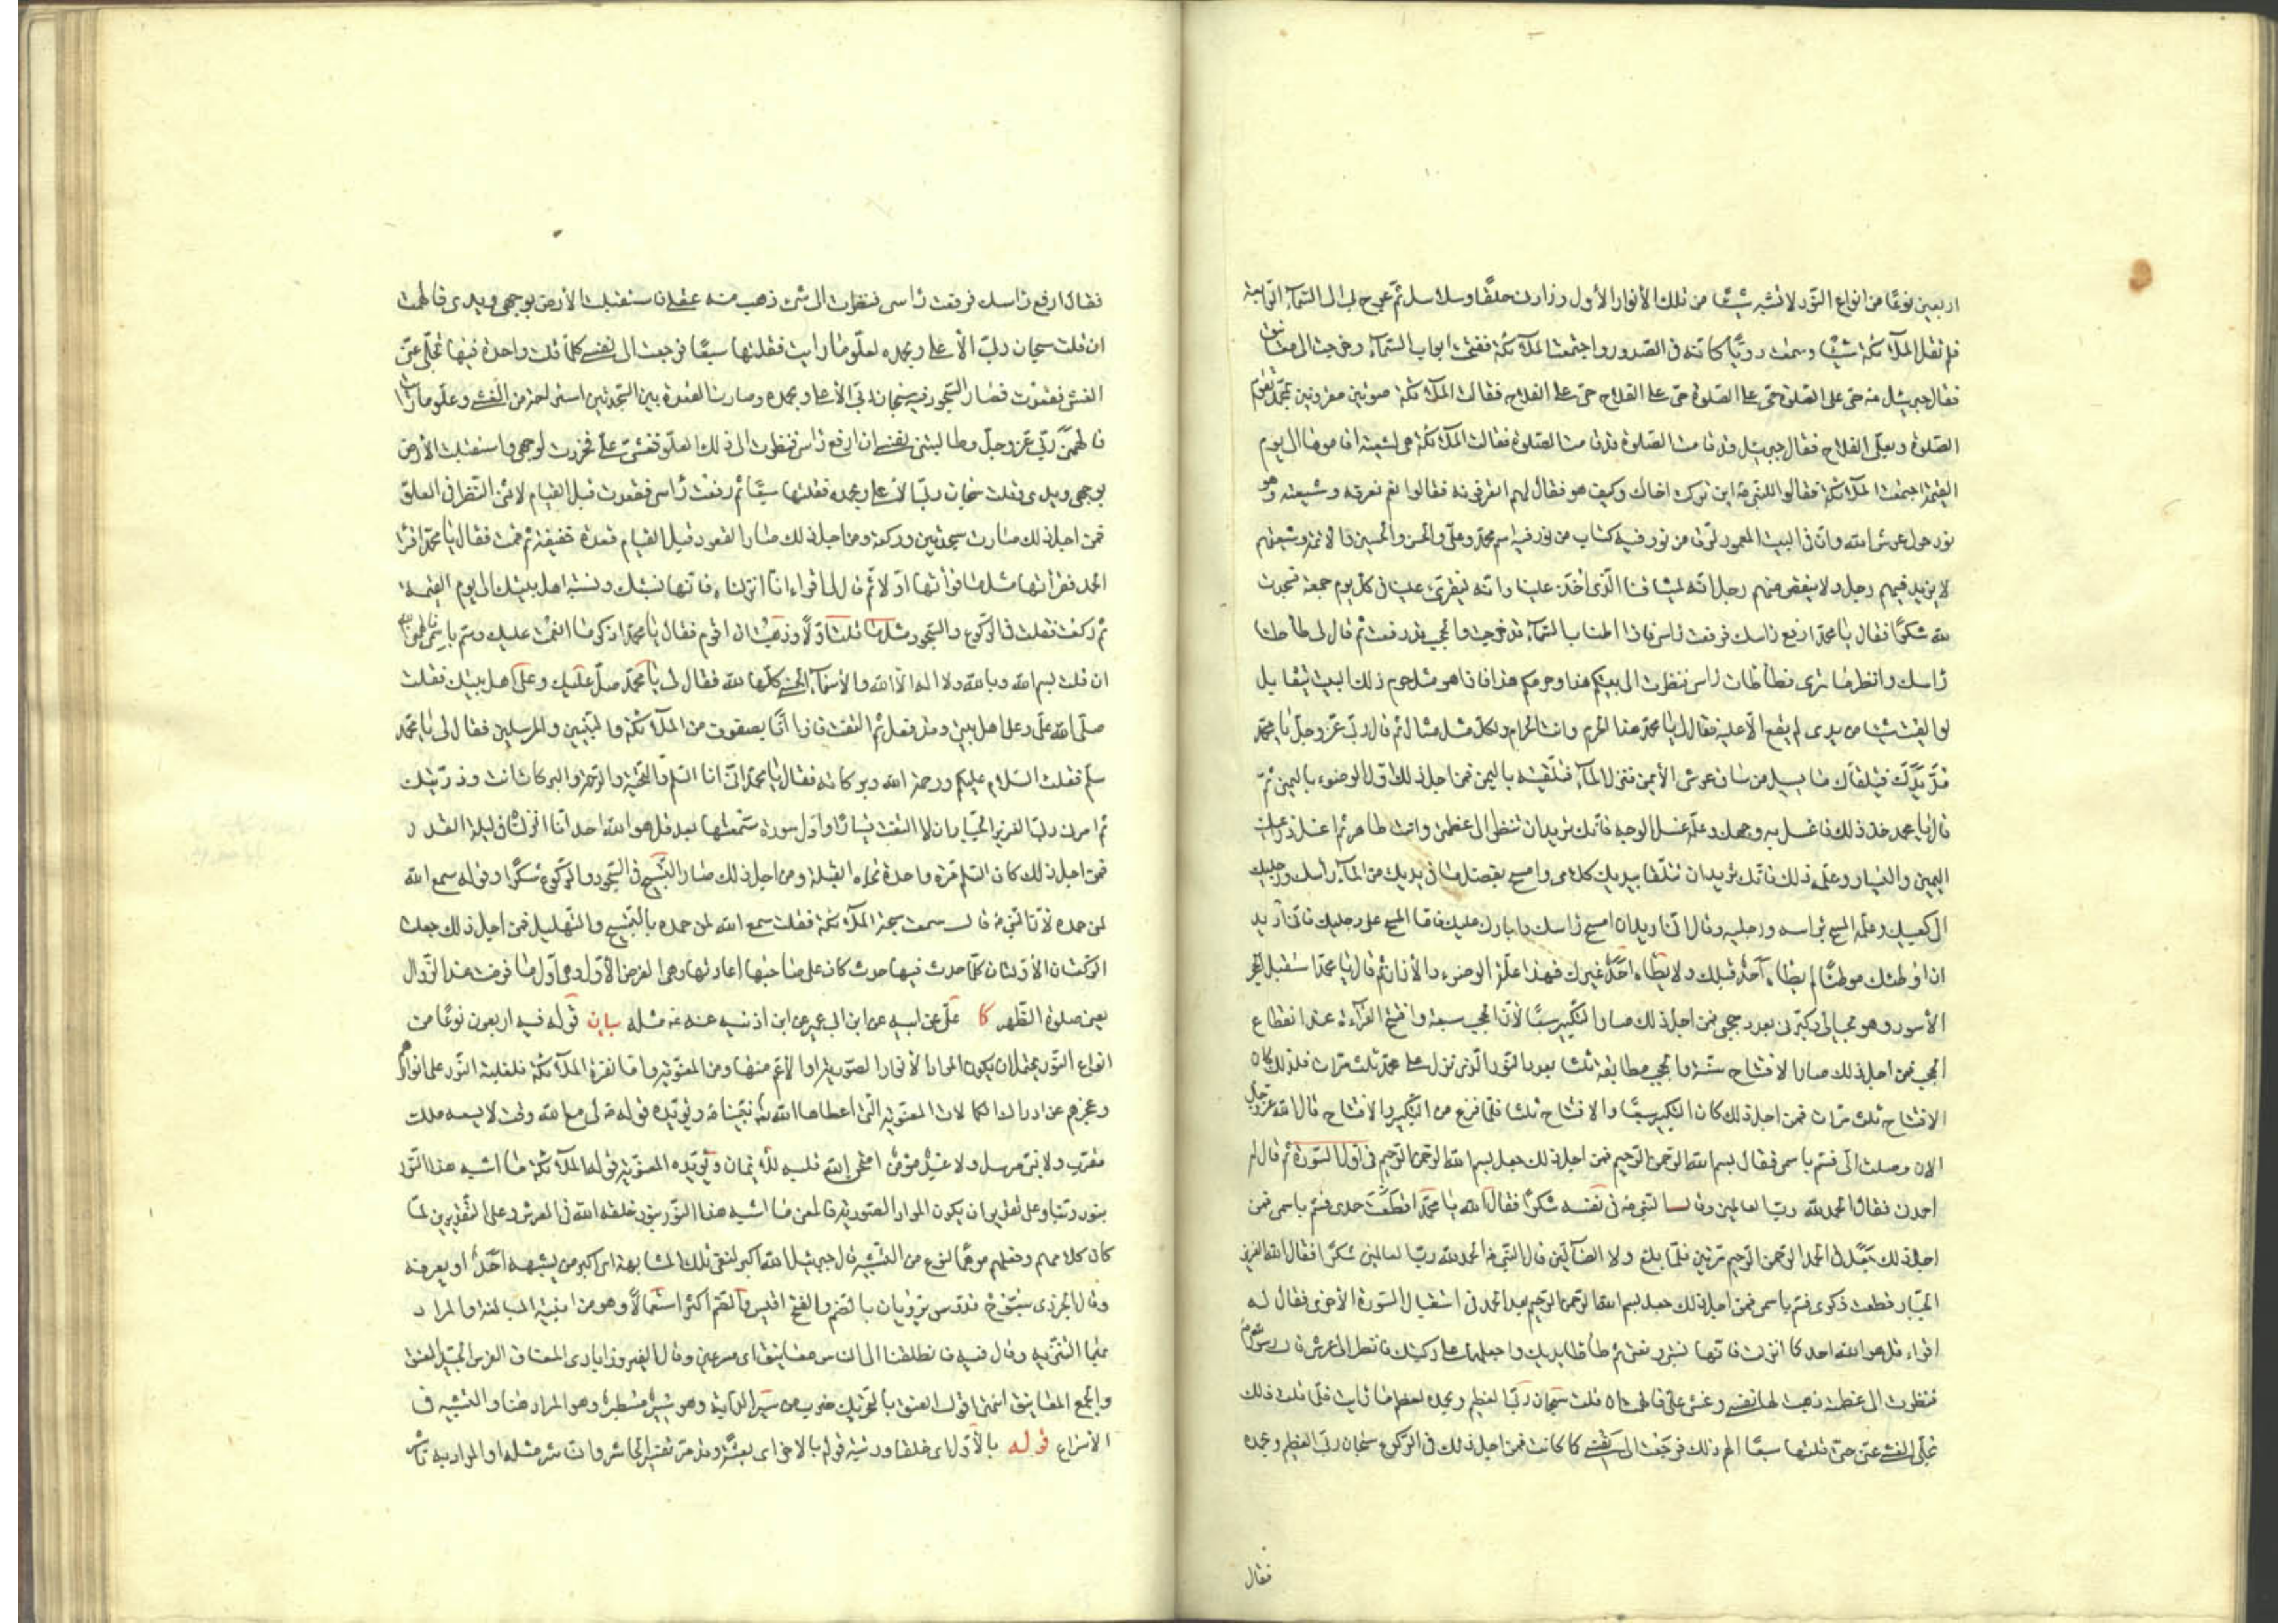 اربعين نوعًا من انواع النّور لا تشبه شيئًا من تلك الأنوار الأول وزادنى حلقًا وسلاسل ثمّ عرج بى الى السّماء الرّابعة
فلم تقل الملآئكة شيئًا وسمعت دويًّا كانّه فى الصّدور واجتمعت الملآئكة ففتحت ابواب السّماء وخرجت الىّ معانيق
فقال جبرئيل ع حىّ على الصّلوة حىّ على الصّلوة حىّ على الفلاح حىّ على الفلاح فقالت الملآئكة صوتين مقرونين بمحمّد تقوم
الصّلوة وبعلىّ الفلاح فقال جبرئيل قد قامت الصّلوة قد قامت الصّلوة فقالت الملآئكة هى لشيعته اقاموها الى يوم
القيمة اجتمعت الملآئكة فقالوا للنّبىّ ع اين تركت اخاك وكيف هو فقال لهم اتعرفونه فقالوا نعم نعرفه وشيعته وهو
نور حول عرش الله وانّ فى البيت المعمور لرقّا من نور فيه كتاب من نور فيه اسم محمّد وعلىّ والحسن والحسين والائمّة وشيعتهم
لا يزيد فيهم رجل ولا ينقص منهم رجل انّه لميثاقنا الّذى اخذ علينا وانّه ليقرئ علينا فى كلّ يوم جمعة فسجدت
لله شكرًا فقال يا محمّد ارفع رأسك فرفعت رأسى فاذا اطناب السّماء قد خرقت والحجب قد رفعت ثمّ قال لى طأطأ
رأسك وانظر ما ترى فطأطأت رأسى فنظرت الى بيتكم هذا وحرمكم هذا فاذا هو مثل حرم ذلك البيت يتقابل
لو القيت شيئا من يدى لم يقع الّا عليه فقال لى يا محمّد هذا الحرم وانت الحرام ولكلّ مثل مثال ثمّ قال ربّى عزّ وجلّ يا محمّد
مدّ يدك فيتلقّاك ما يسيل من ساق عرش الأيمن فنزل المآء فتلقّيته باليمين فمن اجل ذلك اوّل الوضوء باليمين ثمّ
قال يا محمد خذ ذلك فاغسل به وجهك وعلّمه غسل الوجه فانّك تريد ان تنظر الى عظمتى وانت طاهر ثمّ اغسل ذراعيك
اليمين واليسار وعلّمه ذلك فانّك تريد ان تتلقّا بيديك كلامى وامسح بفضل ما فى يديك من المآء رأسك ورجليك
الى كعبيك وعلّمه المسح برأسه ورجليه وقال انّى اريد ان امسح رأسك وابارك عليك فامّا المسح على رجليك فانّى اريد
ان اوطئك موطئًا لم يطأه احدٌ قبلك ولا يطأه احدٌ غيرك فهذا علّة الوضوء والأذان ثمّ قال يا محمّد استقبل الحجر
الأسود وهو بحيالى وكبّرنى بعدد حجبى فمن اجل ذلك صار التّكبير سبعًا لأنّ الحجب سبعة وافتتح القراءة عند انقطاع
الحجب فمن اجل ذلك صار الافتتاح سنّة والحجب مطابقة ثلثا بعدد النّور الّذى نزل على محمّد ثلث مرّات فلذلك كان
الافتتاح ثلث مرّات فمن اجل ذلك كان التّكبير سبعًا والافتتاح ثلثا فلمّا فرغ من التّكبير والافتتاح قال الله عزّ وجلّ
الان وصلت الىّ فسمّ باسمى فقال بسم الله الرّحمن الرّحيم فمن اجل ذلك جعل بسم الله الرّحمن الرّحيم فى اوّل السّورة ثمّ قال له
احمدنى فقال الحمد لله ربّ العالمين وقال النّبىّ ع فى نفسه شكرًا فقال الله يا محمّد اقطعت حمدى فسمّ باسمى فمن
اجل ذلك جعل فى الحمد الرّحمن الرّحيم مرّتين فلمّا بلغ ولا الضّآلّين قال النّبىّ ع الحمد لله ربّ العالمين شكرًا فقال الله العزيز
الجبّار قطعت ذكرى فسمّ باسمى فمن اجل ذلك جعل بسم الله الرّحمن الرّحيم بعد الحمد فى استقبال السّورة الأخرى فقال له
اقراء قل هو الله احد كما انزلت فانّها نسبتى ونعتى ثمّ طأطأ يديك واجعلهما على ركبتيك فانظر الى عرشى قال رسول الله ص
فنظرت الى عظمة ذهبت لها نفسى وغشى علىّ فالهمت ان قلت سبحان ربّى العظيم وبحمده لعظم ما رأيت فلمّا قلت ذلك
تجلّى الغشى عنّى حتى قلتها سبعًا الهم ذلك فرجعت الىّ نفسى كما كانت فمن اجل ذلك فى الرّكوع سبحان ربّى العظيم وبحمده
فقال
فقال ارفع رأسك فرفعت رأسى فنظرت الى شئ ذهب منه عقلى فاستقبلت الأرض بوجهى ويدى فالهمت
ان قلت سبحان ربّى الأعلى وبحمده لعلوّ ما رايت فقلتها سبعًا فرجعت الىّ نفسى كلّما قلت واحدة فيها تجلّى عنّى
الغشى فقعدت فصار السّجود فيه سبحان ربّى الأعلى وبحمده وصارت القعدة بين السّجدتين استراحة من الغشى وعلوّ ما رأيت
فالهمنى ربّى عزّ وجلّ وطالبتنى نفسى ان ارفع رأسى فنظرت الى ذلك العلوّ فغشى علىّ فخررت لوجهى واستقبلت الأرض
بوجهى ويدى وقلت سبحان ربّى الأعلى وبحمده فقلتها سبعًا ثمّ رفعت رأسى فقعدت قبل القيام لاثنى النّظر فى العلوّ
فمن اجل ذلك صارت سجدتين وركعة ومن اجل ذلك صار القعود قبل القيام قعدة خفيفة ثمّ قمت فقال يا محمّد اقرأ
الحمد فقرأتها مثل ما قرأتها اوّلا ثمّ قال لى اقراء انّا انزلناه فانّها نسبتك ونسبة اهل بيتك الى يوم القيمة
ثمّ ركعت فقلت فى الرّكوع والسّجود مثل ما قلت اوّلًا وذهبت ان اقوم فقال يا محمّد اذكر ما انعمت عليك وسمّ باسمى فالهمنى الله
ان قلت بسم الله وبالله ولا اله الّا الله والأسمآء الحسنى كلّها لله فقال لى يا محمّد صلّ عليك وعلى اهل بيتك فقلت
صلّى الله علىّ وعلى اهل بيتى وقد فعل ثمّ التفتّ فاذا انا بصفوف من الملآئكة والنّبيّين والمرسلين فقال لى يا محمّد
سلّم فقلت السّلام عليكم ورحمة الله وبركاته فقال يا محمّد انّى انا السّلام والتّحيّة والرّحمة والبركات انت وذرّيتك
ثمّ امرنى ربّى العزيز الجبّار ان لا التفت يسارًا واوّل سورة سمعتها بعد قل هو الله احد انّا انزلناه فى ليلة القدر
فمن اجل ذلك كان السّلام مرّة واحدة تجاه القبلة ومن اجل ذلك صار التّسبيح فى السّجود والرّكوع شكرًا وقوله سمع الله
لمن حمده لأنّ النّبىّ ع قال سمعت ضجّة الملآئكة فقلت سمع الله لمن حمده بالتّسبيح والتّهليل فمن اجل ذلك جعلت
الرّكعتان الأوّلتان كلّما حدث فيها حدث كان على صاحبها اعادتها وهى الفرض الأوّل وهى اوّل ما فرضت عند الزّوال
يعنى صلوة الظّهر كا علىّ عن ابيه عن ابن ابى عمير عن ابن اذينه عنه ع مثله بيان قوله فيه اربعون نوعًا من
انواع النّور يحتمل ان يكون المراد الأنوار الصّورية او الأعمّ منها ومن المعنويّة وامّا نفرة الملآئكة فلغلبة النّور على انوارهم
وعجزهم عن ادراك الكمالات المعنويّة الّتى اعطاها الله نبيّنا ع ويؤيّده قوله ع لى مع الله وقت لا يسعه ملك
مقرّب ولا نبىّ مرسل ولا عبد مؤمن امتحن الله قلبه للأيمان ويؤيّد المعنويّة قول الملآئكة ما اشبه هذا النّور
بنور ربّنا وعلى تقدير ان يكون المراد الصّوريّة فالمعنى ما اشبه هذا النّور بنور خلقه الله فى العرش وعلى التّقديرين لمّا
كان كلامهم وفعلهم موهمًا لنوع من التّشبيه قال جبرئيل الله اكبر لنفى تلك المشابهة اى اكبر من ان يشبهه احدٌ او يعرفه
وقال الجزرى سبّوح قدّوس يرويان بالضم والفتح اقيس والضّم اكثر استعمالًا وهو من ابنية المبالغة والمراد
بهما التّنزيه وقال فيه فانطلقنا الى الناس معانيق اى مسرعين وقال الفيروزابادى المعناق الفرس الجيّد العنق
والجمع المعانيق انتهى اقول العنق بالتّحريك ضرب من سير الدّابة وهو سير مسبطرّ وهو المراد هنا والتشبيه فى
الأسراع قوله